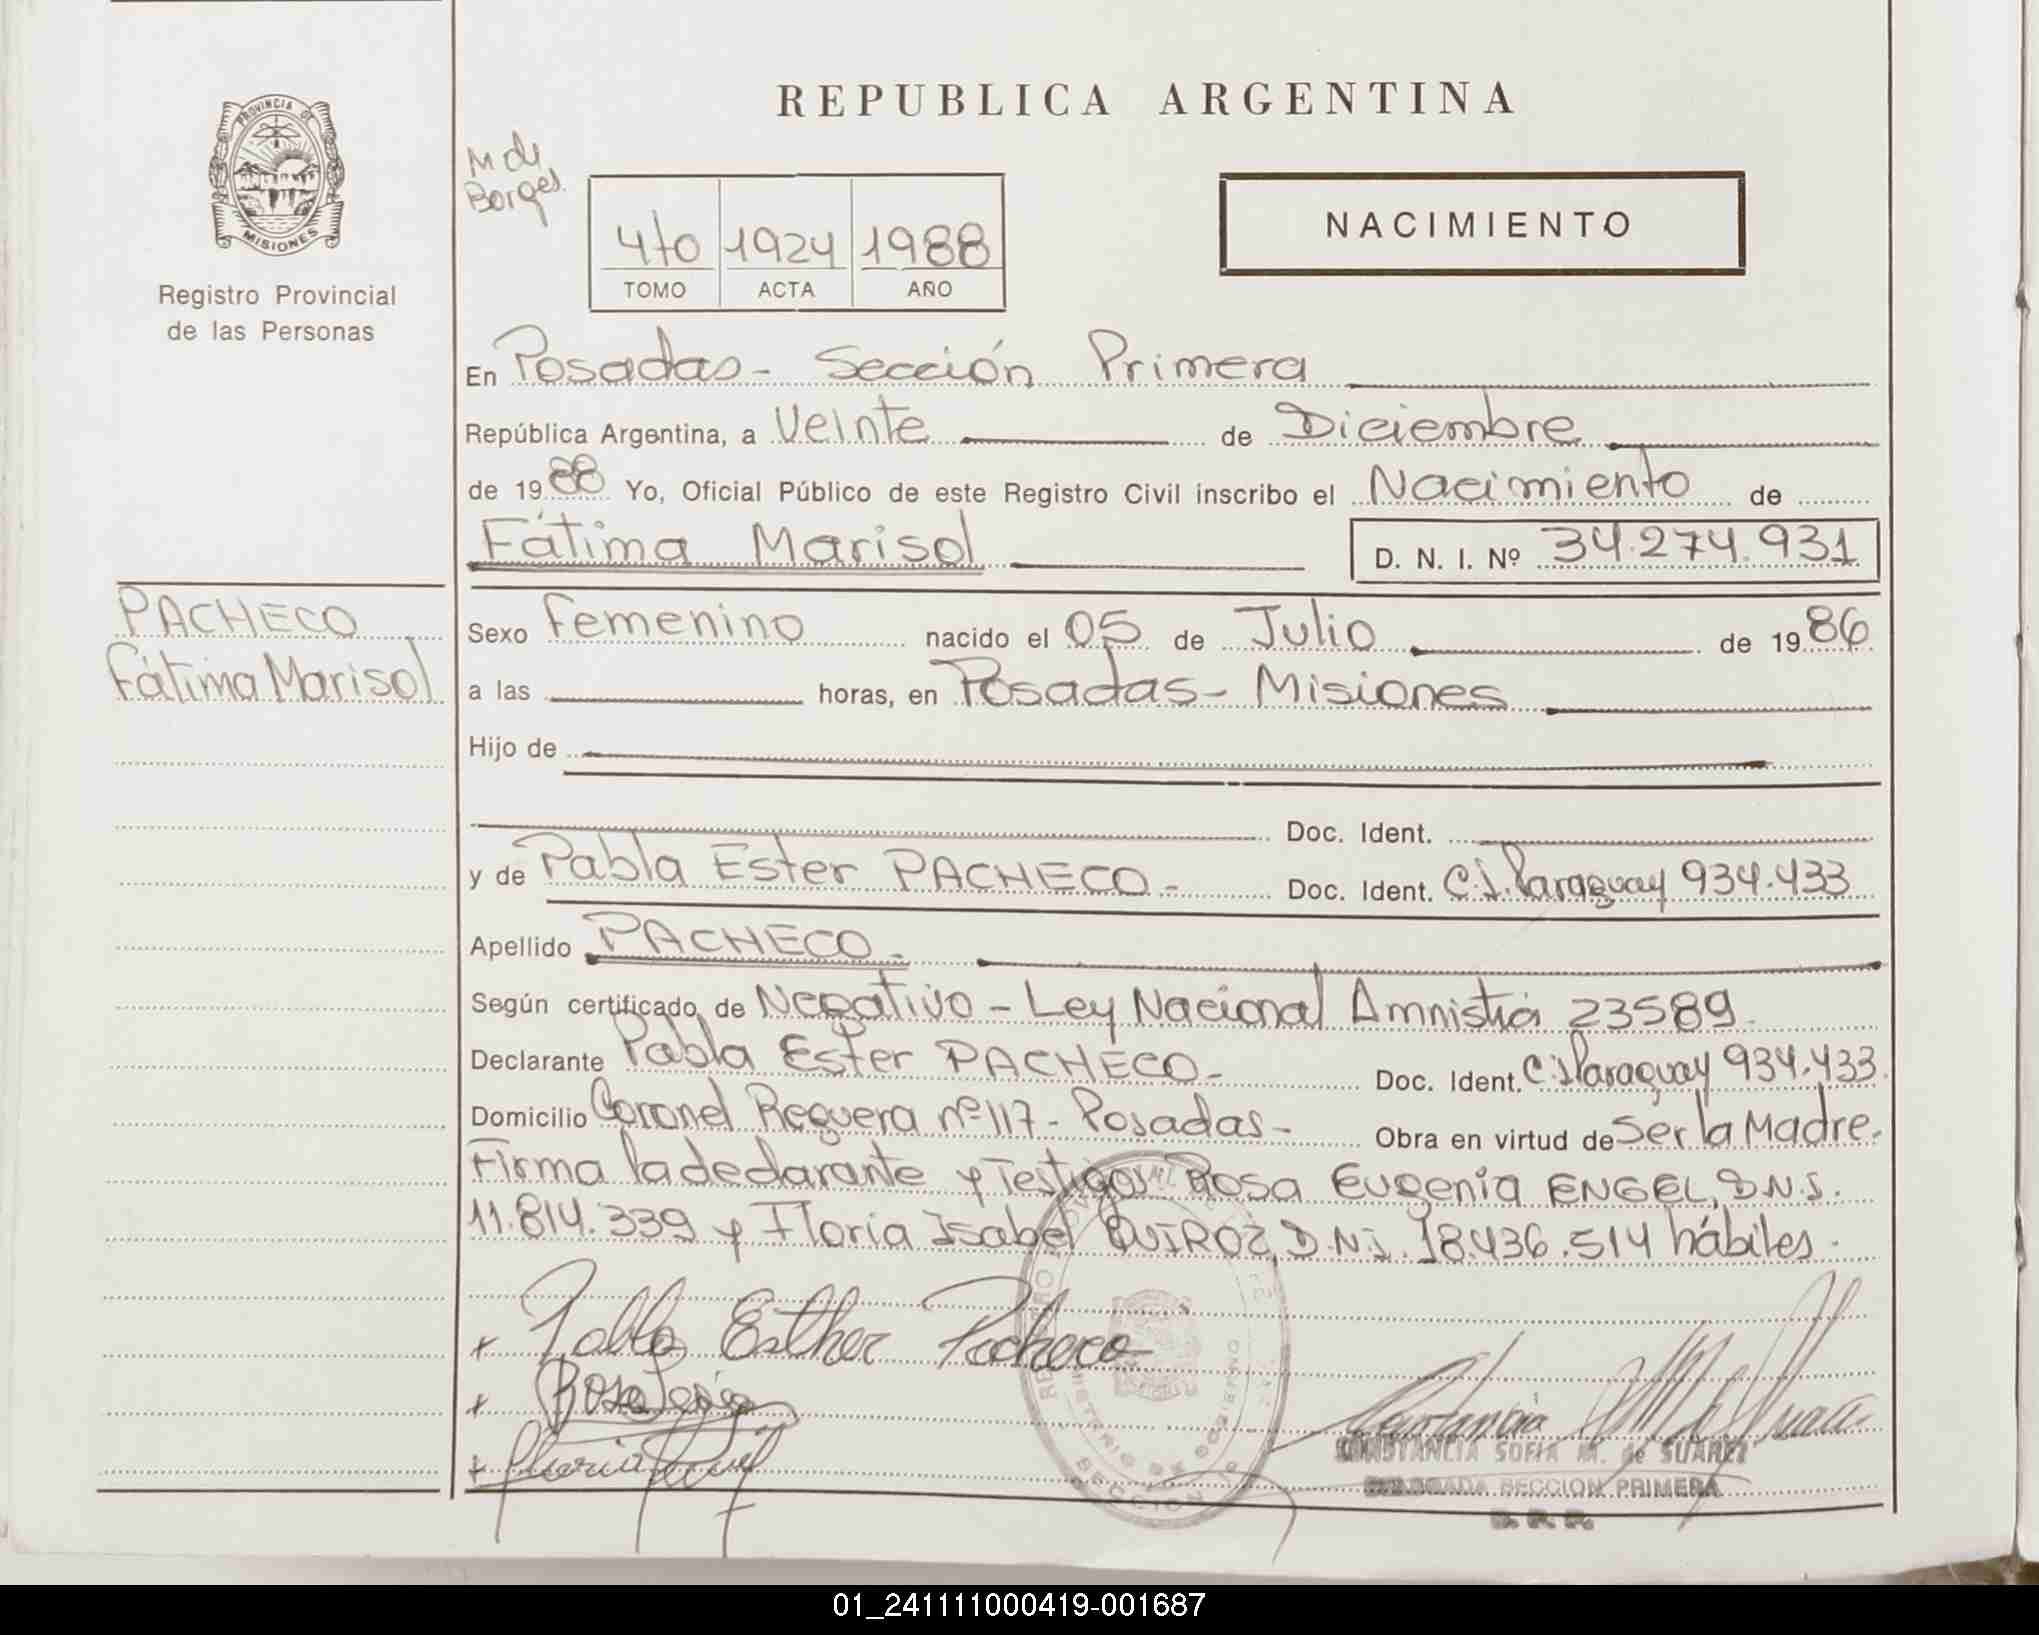 REPUBLICA ARGENTINA
PROVINCIA DE
MISIONES
Registro Provincial
de las Personas
M de
Borges
4to 1924 1988
TOMO ACTA AÑO
NACIMIENTO
En Posadas - Sección Primera
República Argentina, a Veinte de Diciembre
de 1988 Yo, Oficial Público de este Registro Civil inscribo el Nacimiento de
Fátima Marisol D. N. I. Nº 34.274.931
PACHECO
Fátima Marisol
Sexo femenino nacido el 05 de Julio de 1986
a las horas, en Posadas - Misiones
Hijo de
Doc. Ident.
y de Pabla Ester PACHECO - Doc. Ident. C.I. Paraguay 934.433
Apellido PACHECO -
Según certificado de Negativo - Ley Nacional Amnistía 23589
Declarante Pabla Ester PACHECO - Doc. Ident. C.I Paraguay 934.433
Domicilio Coronel Reguera nº 117 - Posadas - Obra en virtud de Ser la Madre.
Firma la declarante y Testigos Rosa Eugenia ENGEL, D.N.I.
11.814.339 y Floria Isabel QUIROZ, D.N.I. 18.436.514 hábiles.
+ Pabla Esther Pacheco
+ Rosa
+
MINISTERIO DE GOBIERNO
SECCION 1ª
CONSTANCIA SOFIA M. de SUAREZ
DELEGADA SECCION PRIMERA
R. P. P.
01_241111000419-001687